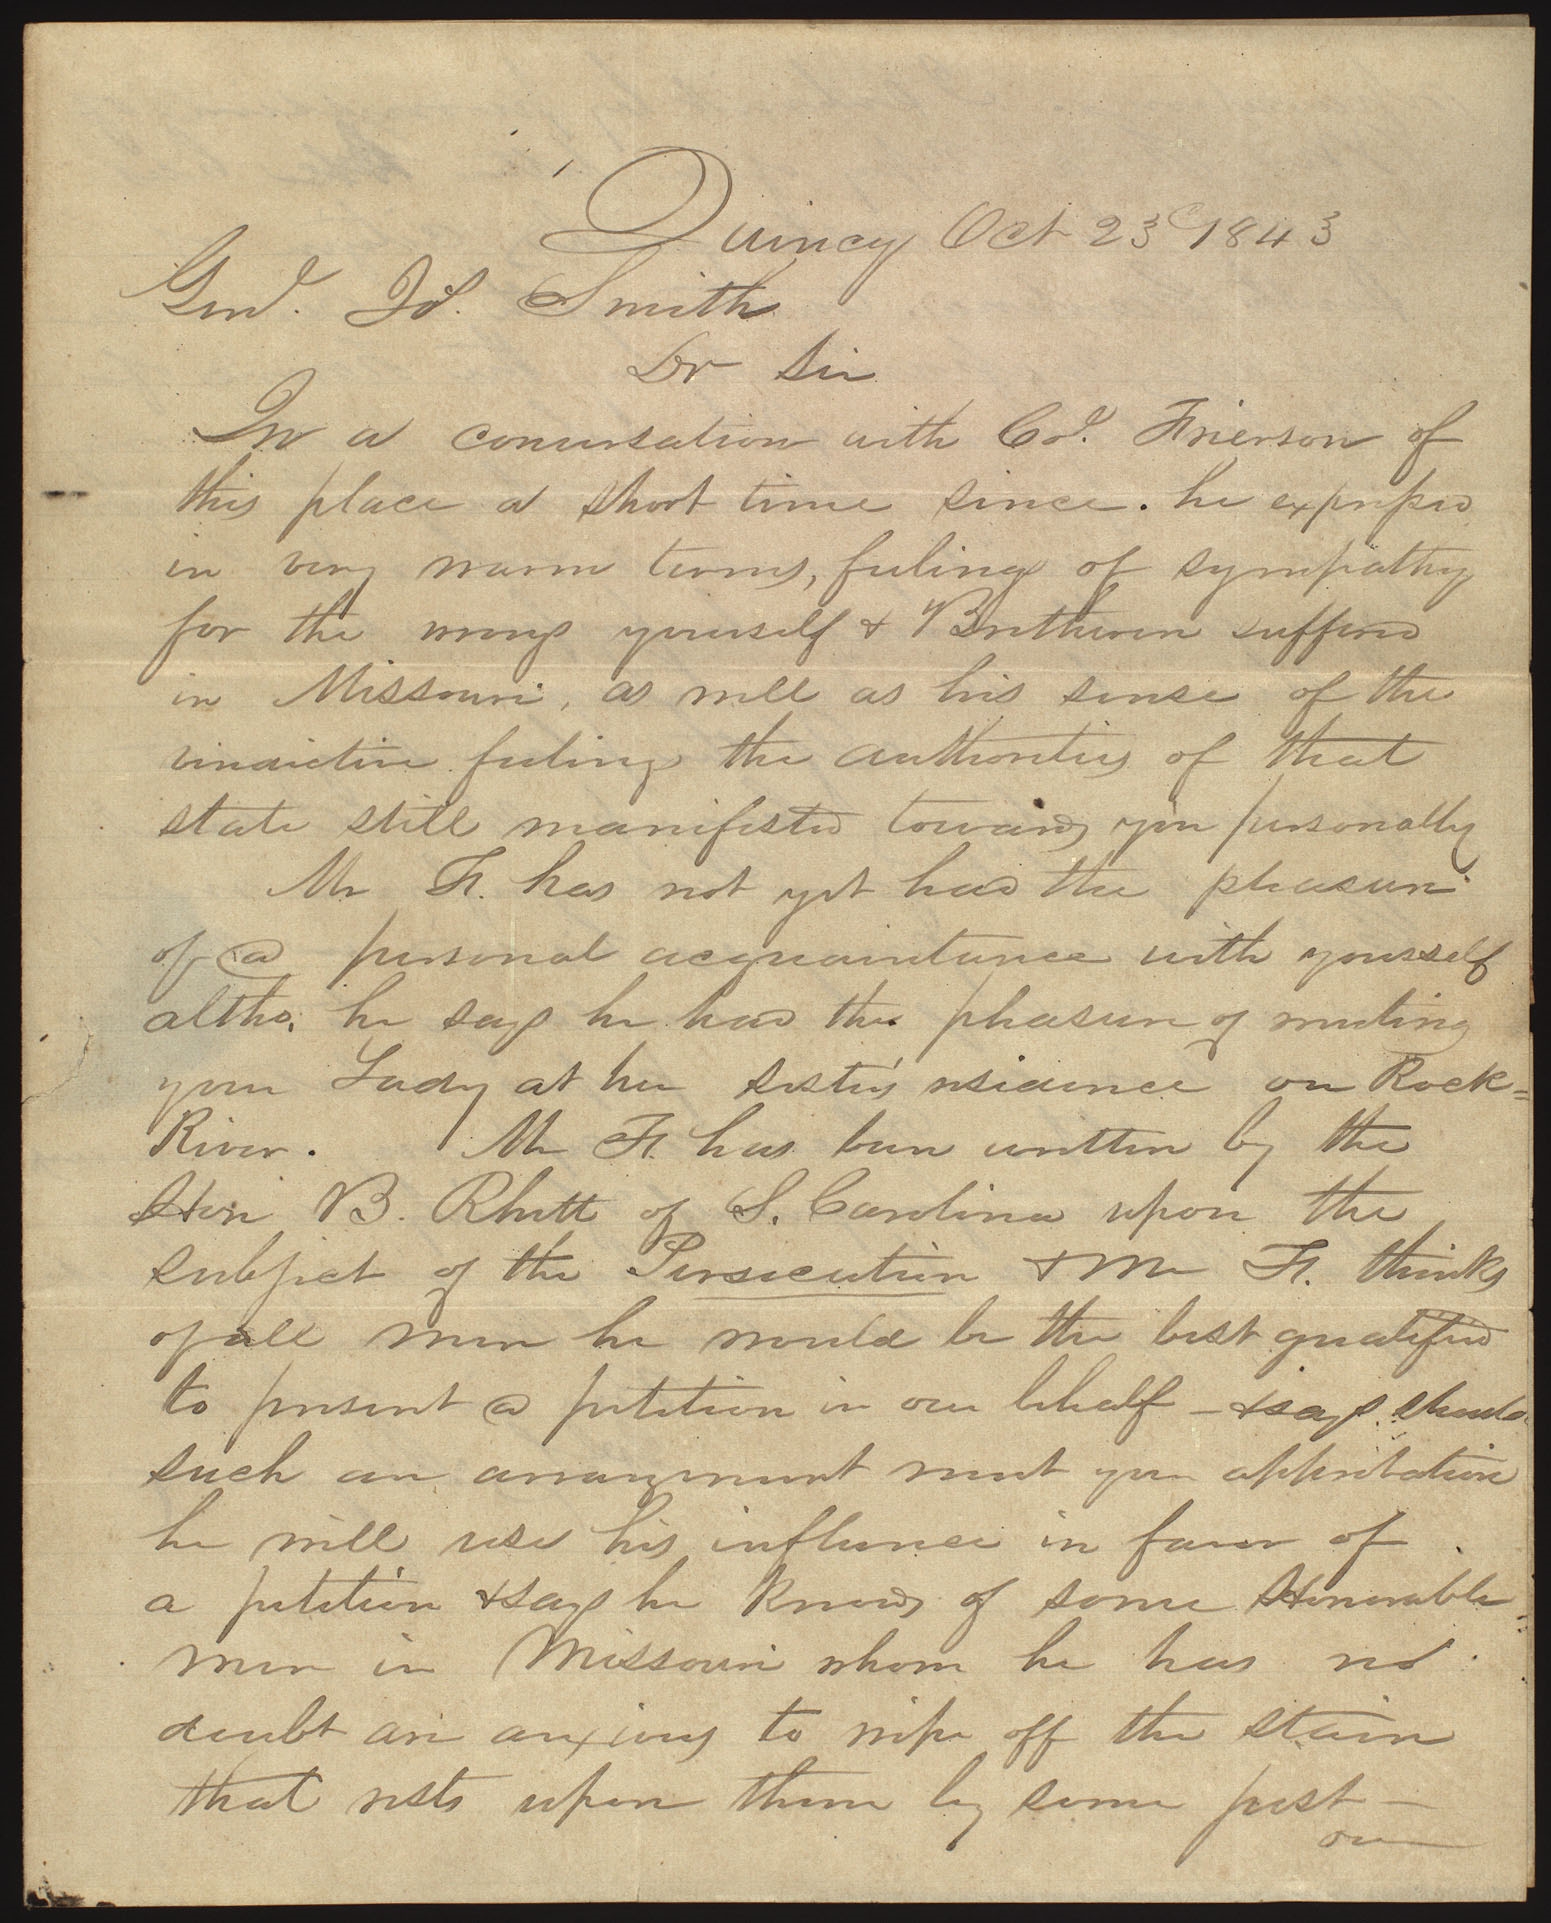 Quincy Oct 23d 1843
Genl. Js. Smith
Dr Sir
In a conversation with Col. Frierson of
this place a short time since. he expressed
in very warm terms, feelings of sympathy
for the wrongs yourself & Bretheren suffered
in Missouri, as well as his sense of the
vindictive feeling the authorities of that
state still manifested towards you personally
Mr Fr. has not yet had the pleasure
of a personal acquaintance with yourself
altho. he says he had the pleasure of meeting
your Lady at her sister's residence on Rock=
River. Mr Fr. has been written by the
Hon B. Rhett of S. Carolina upon the
subject of the Persecution & Mr Fr. thinks
of all men he would be the best qualified
to present a petition in our behalf - & says should
such an arrangement meet your approbation
he will use his influence in favor of
a petition & says he knows of some Honorable
men in Missouri whom he has no
doubt are anxious to wipe off the stain
that rests upon them by some just -
our